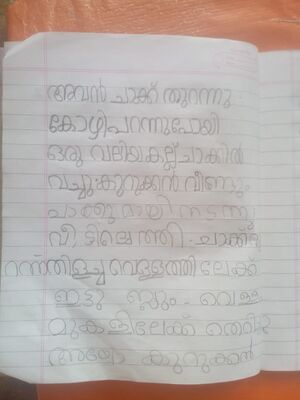 അവൻ ചാക്ക് തുറന്നു.
കോഴിപറന്നുപോയി
ഒരു വലിയകല്ല് ചാക്കിൽ
വച്ചു. കുറുക്കൻ വീണ്ടും
ചാക്കുമായി നടന്നു
വീട്ടിലെത്തി. ചാക്ക്
തിളച്ച വെള്ളത്തിലേക്ക്
ഇട്ടു വെള്ളം
മുകളിലേക്ക് തെറിച്ചു
അയ്യോ കുറുക്കൻ